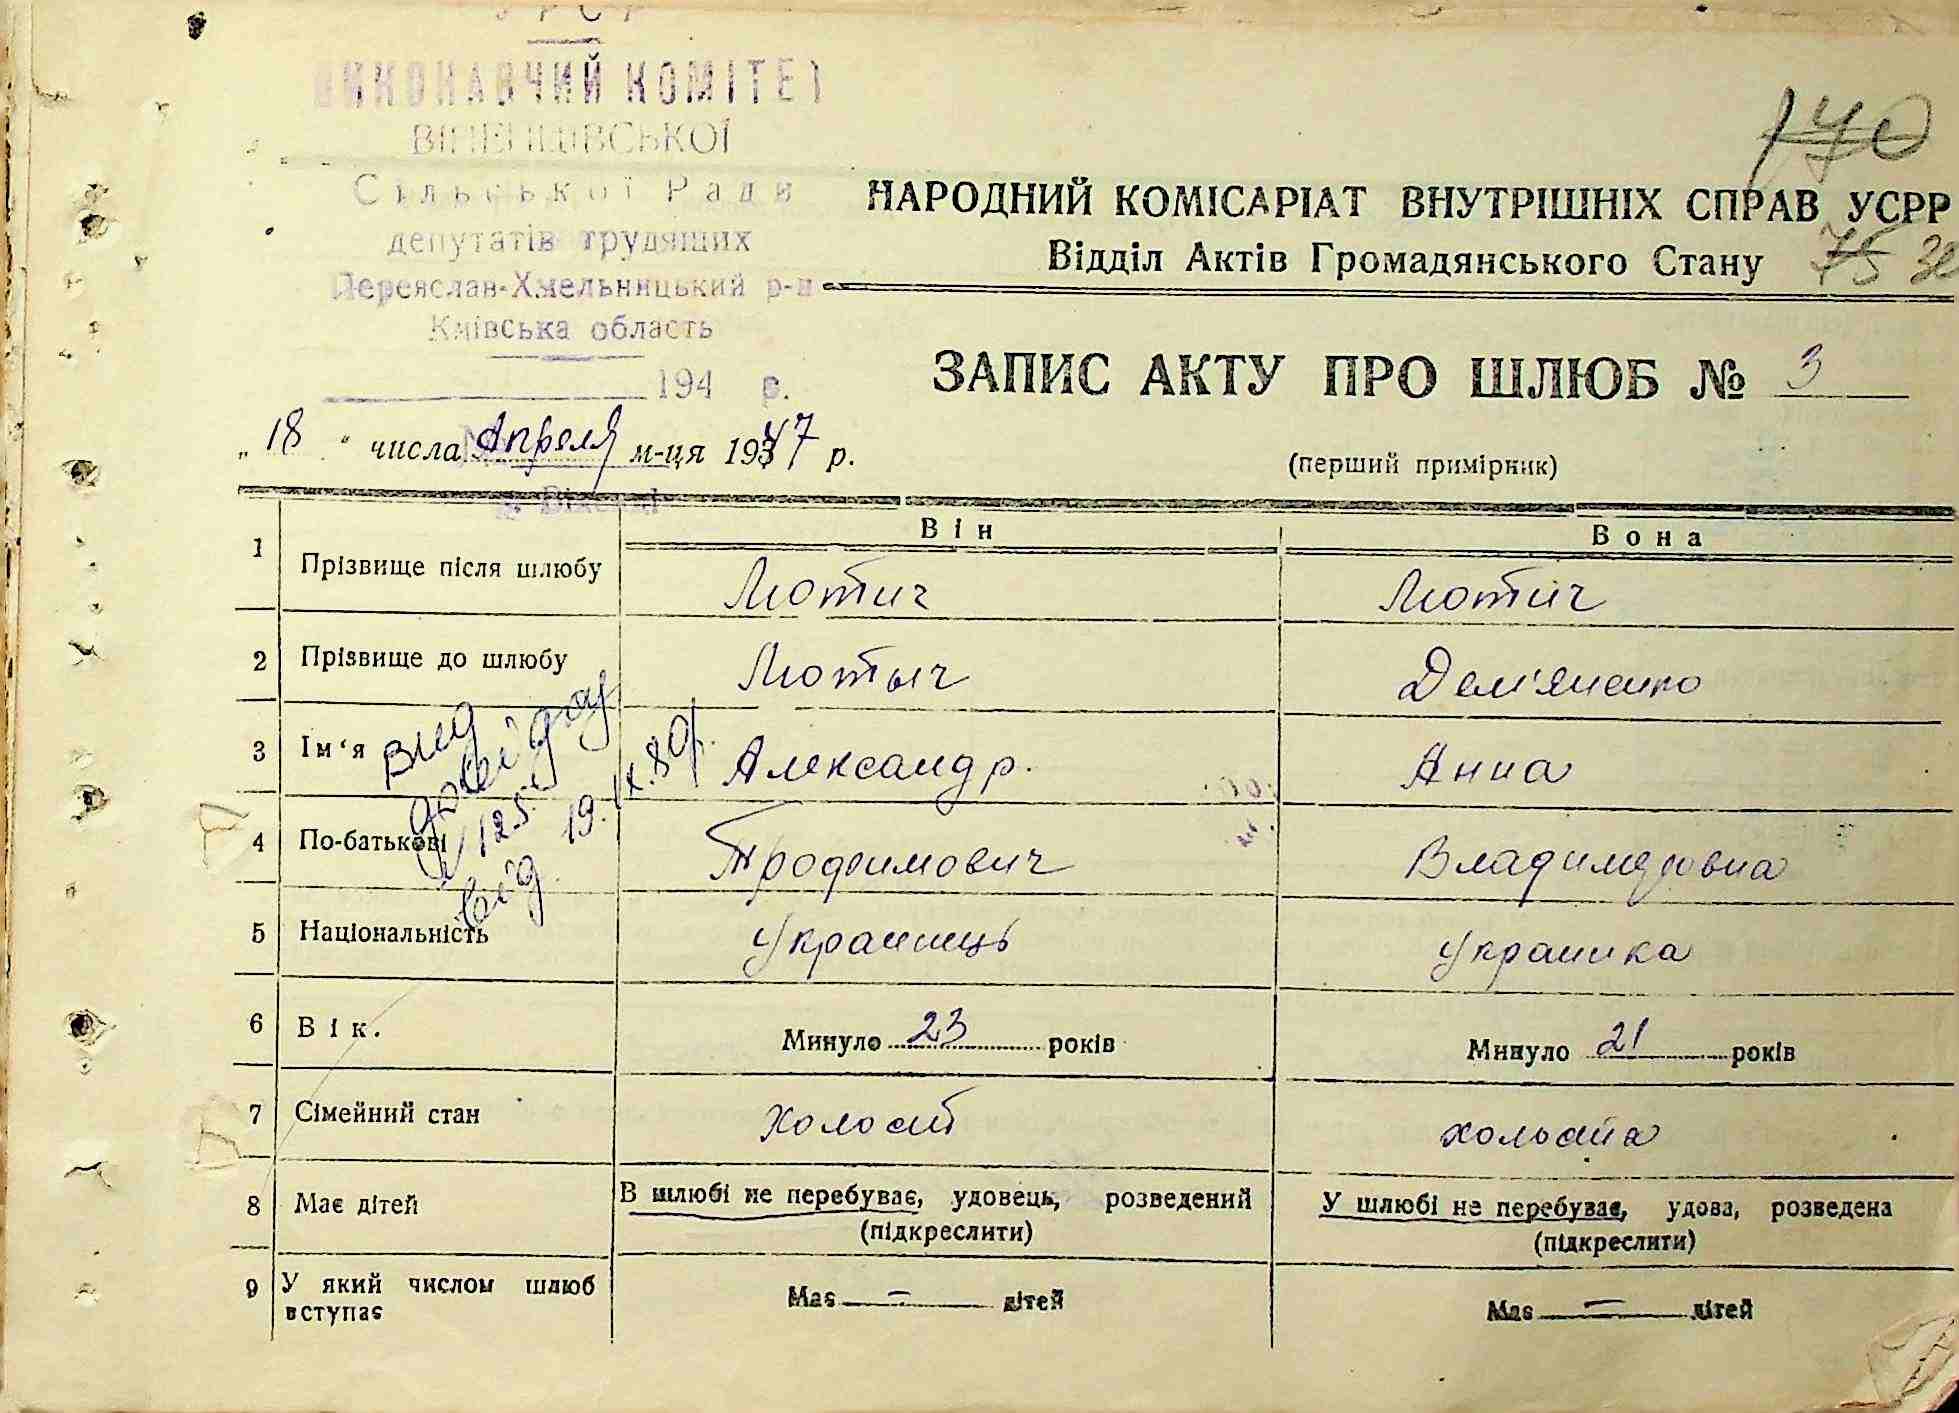 УРСР
ВИКОНАВЧИЙ КОМІТЕТ
Сільської Ради
депутатів трудящих
Переяслав-Хмельницький р-н
Київська область
194 р.
170
НАРОДНИЙ КОМІСАРІАТ ВНУТРІШНІХ СПРАВ УСРР
Відділ Актів Громадянського Стану
75 зв
ЗАПИС АКТУ ПРО ШЛЮБ № 3
„ 18 " числа Апреля м-ця 1947 р.
(перший примірник)
Він Вона
1 Прізвище після шлюбу Лютич Лютич
2 Прізвище до шлюбу Лютыч Дем'яненко
3 Ім'я Александр. Анна
4 По-батькові Трофимович Владимировна
5 Національність Украинець Украинка
6 Вік. Минуло 23 років Минуло 21 років
7 Сімейний стан холост холоста
8 Має дітей В шлюбі не перебуває, удовець, розведений У шлюбі не перебуває, удова, розведена
(підкреслити) (підкреслити)
9 У який числом шлюб вступає Має – дітей Має – дітей
125
від 19.IX.80р.